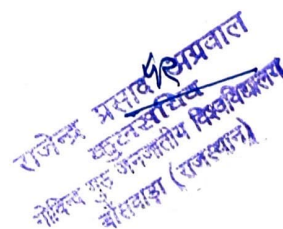 राजेन्द्र प्रसाद अग्रवाल
कुलसचिव
गोविन्द गुरु जनजातीय विश्वविद्यालय
बाँसवाड़ा (राजस्थान)